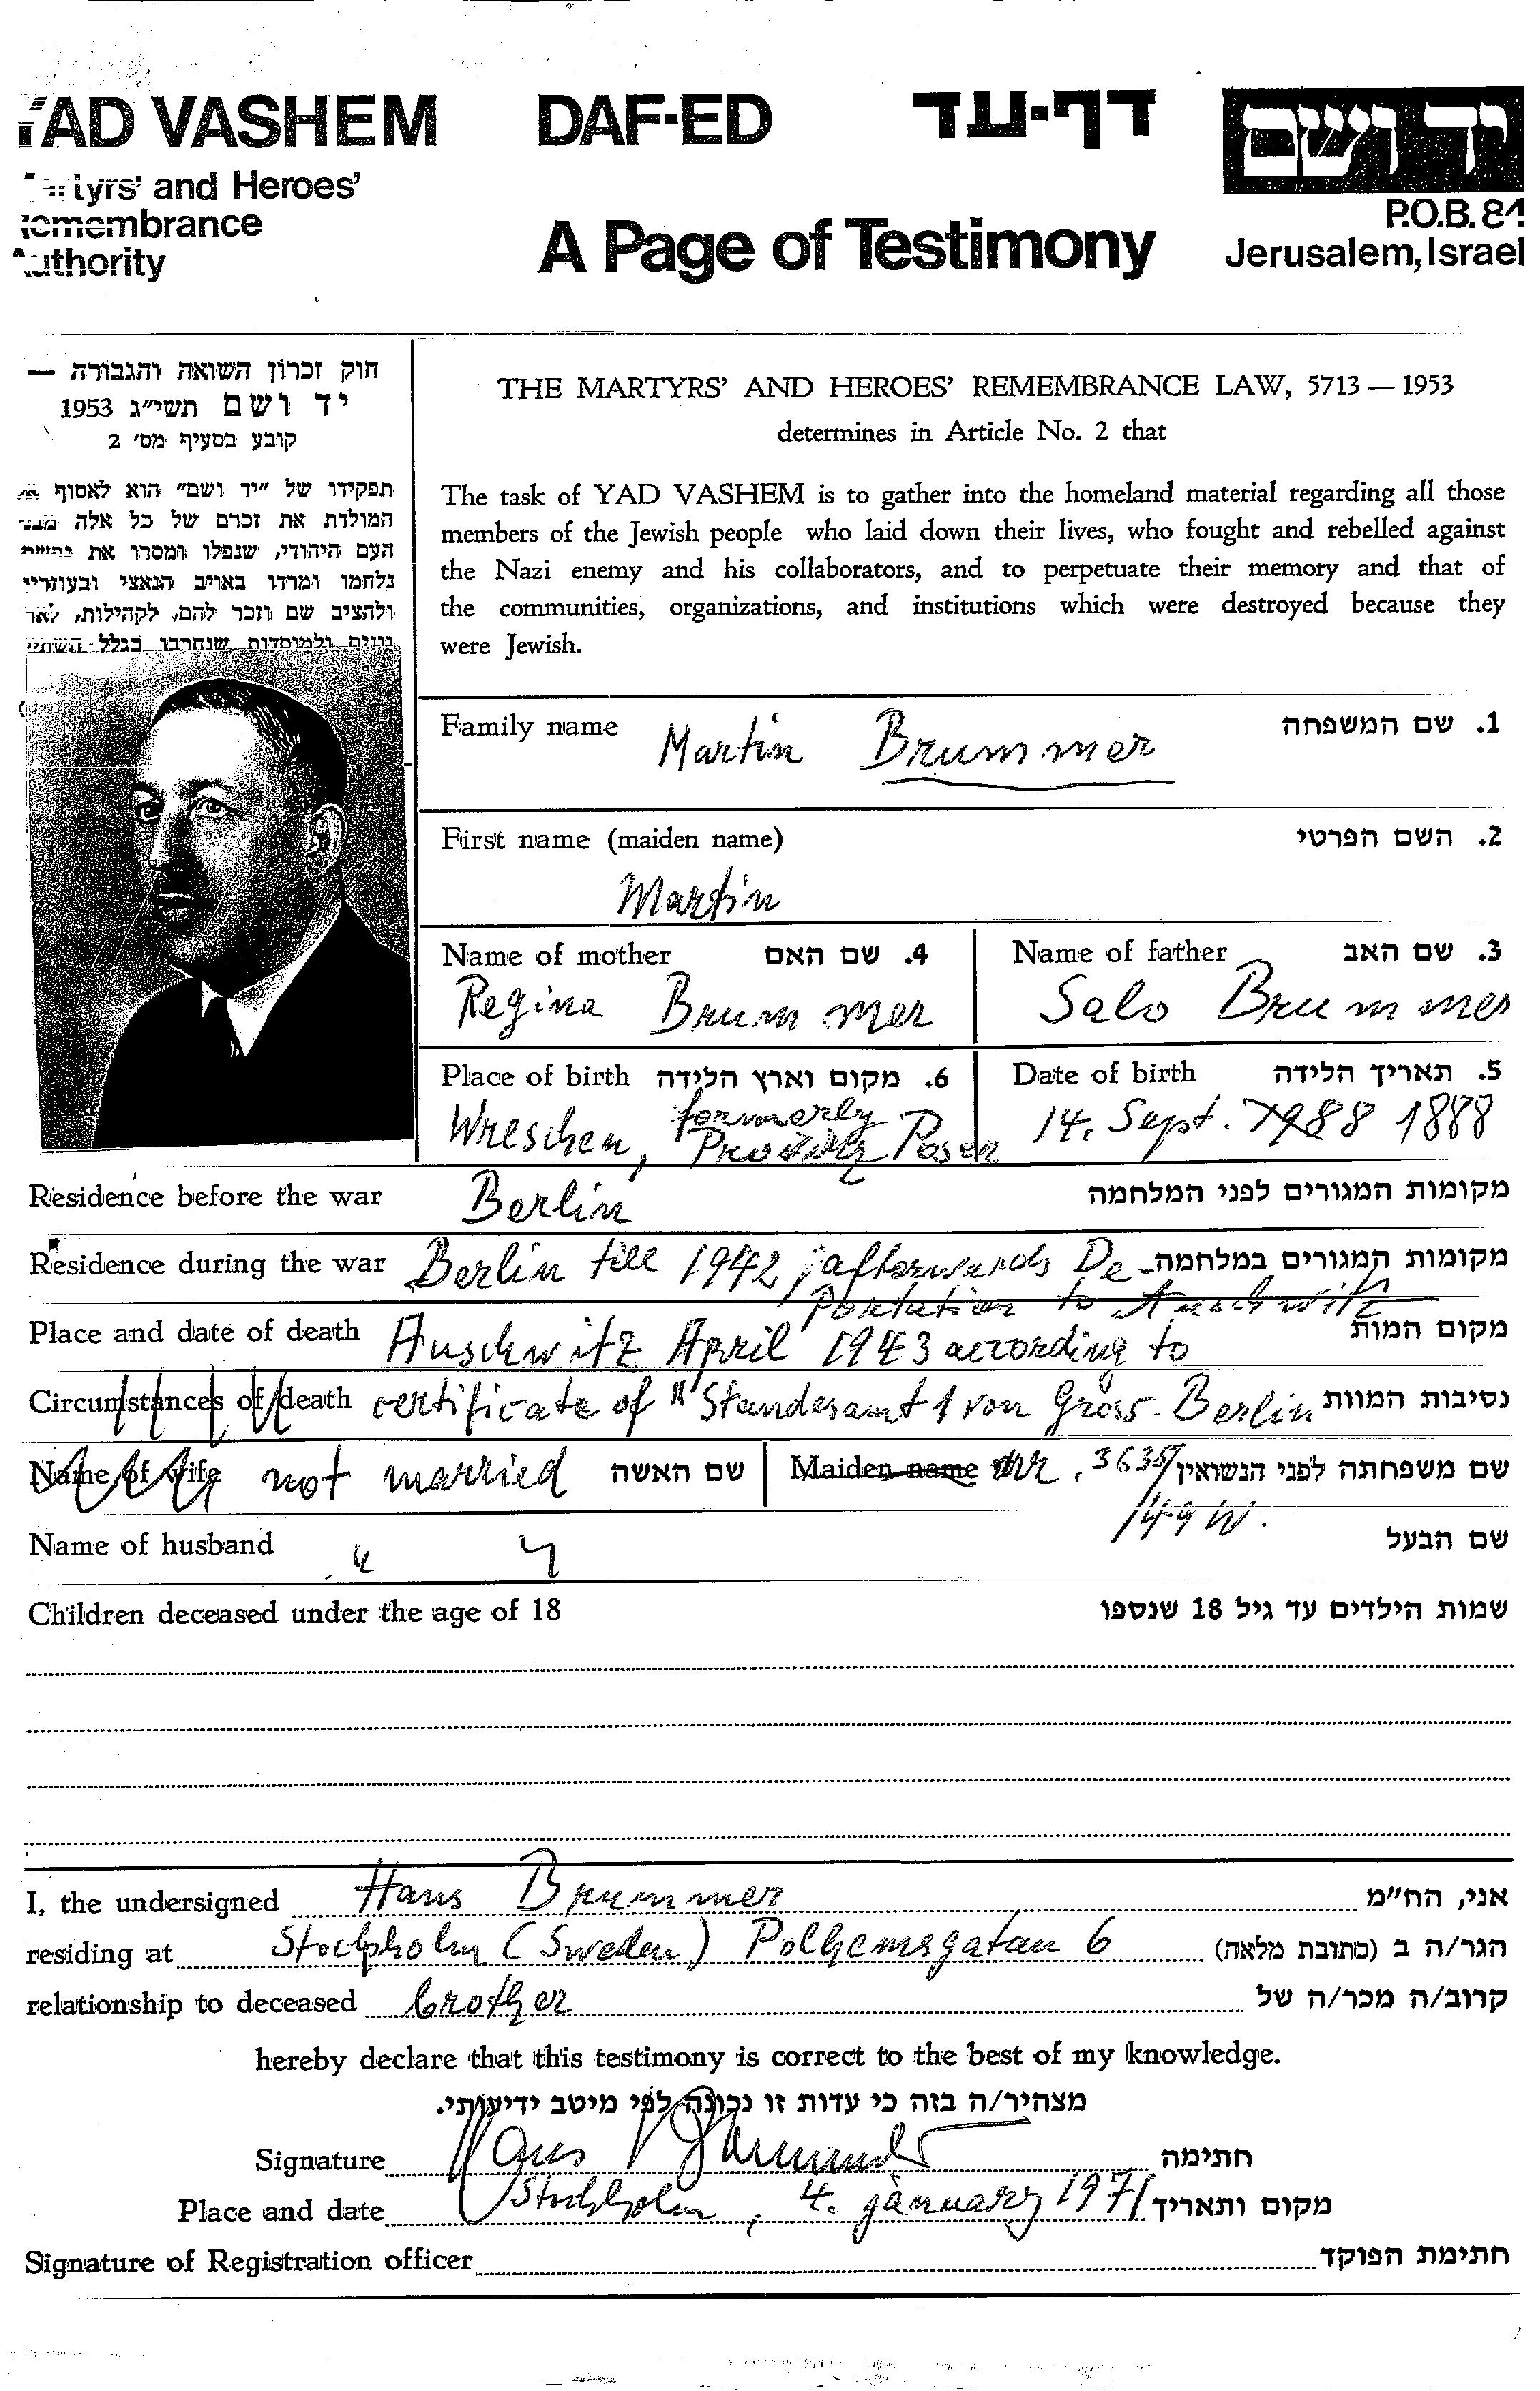 YAD VASHEM DAF-ED דף-עד יד ושם
Martyrs' and Heroes'
Remembrance
Authority
A Page of Testimony
P.O.B. 84
Jerusalem, Israel
חוק זכרון השואה והגבורה —
יד ושם תשי״ג 1953
קובע בסעיף מס' 2
תפקידו של ״יד ושם״ הוא לאסוף אל
המולדת את זכרם של כל אלה מבני
העם היהודי, שנפלו ומסרו את נפשם
נלחמו ומרדו באויב הנאצי ובעוזריו
ולהציב שם וזכר להם, לקהילות, לאר
גונים ולמוסדות שנחרבו בגלל השתיי
THE MARTYRS' AND HEROES' REMEMBRANCE LAW, 5713 — 1953
determines in Article No. 2 that
The task of YAD VASHEM is to gather into the homeland material regarding all those
members of the Jewish people who laid down their lives, who fought and rebelled against
the Nazi enemy and his collaborators, and to perpetuate their memory and that of
the communities, organizations, and institutions which were destroyed because they
were Jewish.
Family name Martin Brummer 1. שם המשפחה
First name (maiden name) 2. השם הפרטי
Martin
Name of mother 4. שם האם Name of father 3. שם האב
Regina Brummer Salo Brummer
Place of birth 6. מקום וארץ הלידה Date of birth 5. תאריך הלידה
Wreschen, formerly Provinz Posen 14. Sept. 1988 1888
Residence before the war Berlin מקומות המגורים לפני המלחמה
Residence during the war Berlin till 1942, afterwards De- מקומות המגורים במלחמה
portation to Auschwitz
Place and date of death Auschwitz April 1943 according to מקום המות
Circumstances of death certificate of "Standesamt 1 von Gross-Berlin נסיבות המוות
Name of wife not married שם האשה Maiden name Nr. 3638/ שם משפחתה לפני הנשואין
149 W.
Name of husband שם הבעל
Children deceased under the age of 18 שמות הילדים עד גיל 18 שנספו
I, the undersigned Hans Brummer אני, הח״מ
residing at Stockholm (Sweden) Polhemsgatan 6 הגר/ה ב (כתובת מלאה)
relationship to deceased brother קרוב/ה מכר/ה של
hereby declare that this testimony is correct to the best of my knowledge.
מצהיר/ה בזה כי עדות זו נכונה לפי מיטב ידיעותי.
Signature Hans Brummer חתימה
Place and date Stockholm, 4. january 1971 מקום ותאריך
Signature of Registration officer חתימת הפוקד